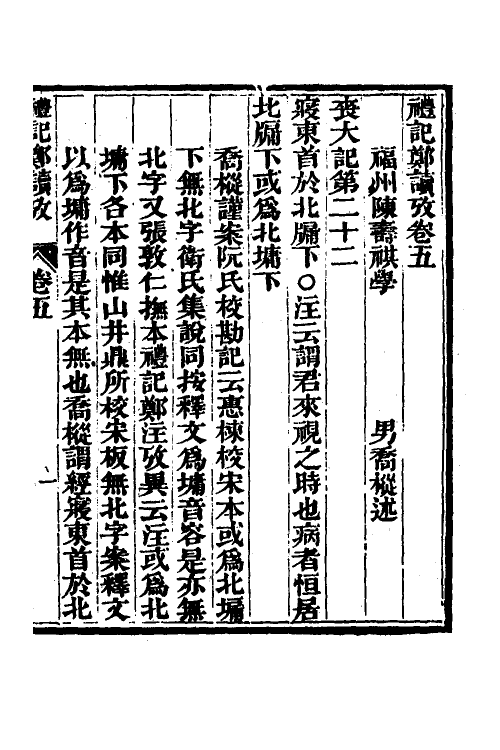 禮記鄭讀攷卷五
福州陳壽祺學 男喬樅述
喪大記第二十二
寢東首於北牖下○注云謂君來視之時也病者恒居
北牖下或爲北墉下
喬樅謹案阮氏校勘記云惠棟校宋本或爲北墉
下無北字衛氏集說同按釋文爲墉音容是亦無
北字又張敦仁撫本禮記鄭注攷異云注或爲北
墉下各本同惟山井鼎所校宋板無北字案釋文
以爲墉作音是其本無也喬樅謂經寢東首於北
禮記鄭讀攷 卷五 一